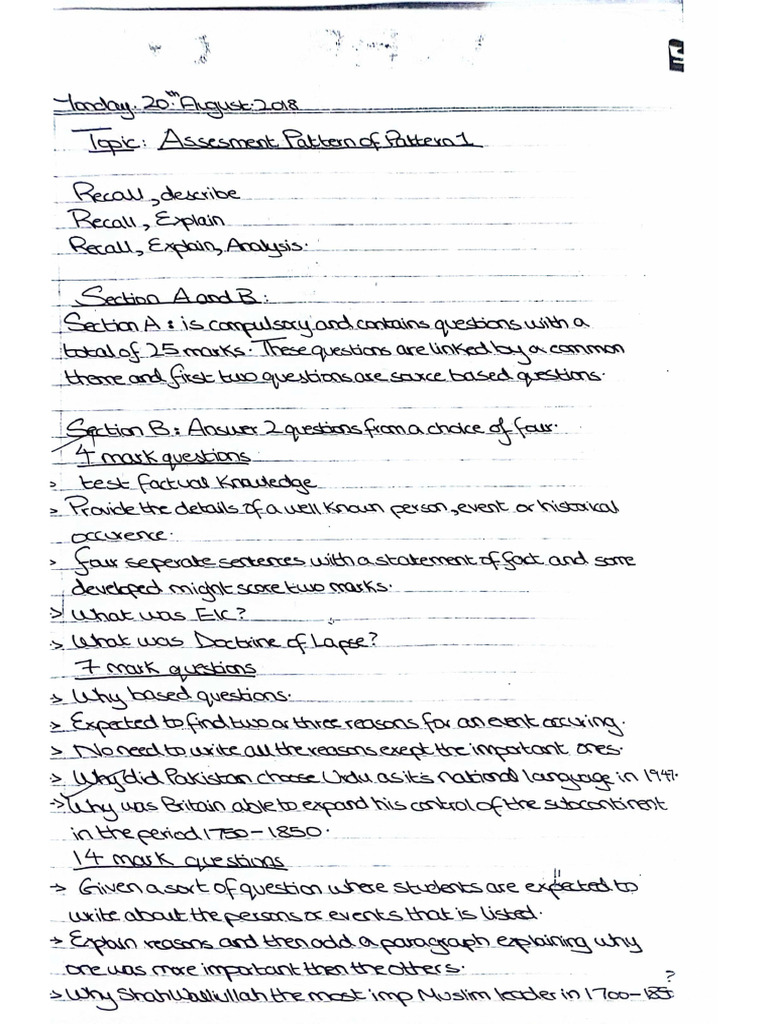 Monday. 20th August. 2018
Topic: Assesment Pattern of Pattern 1
Recall, describe
Recall, Explain
Recall, Explain, Analysis.
Section A and B:
Section A: is compulsory and contains questions with a
total of 25 marks. These questions are linked by a common
theme and first two questions are source based questions.
Section B: Answer 2 questions from a choice of four.
4 mark questions
> test factual knowledge
> Provide the details of a well known person, event or historical
occurence.
> four seperate sentences with a statement of fact and some
developed might score two marks.
> What was EIC?
> What was Doctrine of Lapse?
7 mark questions
> Why based questions.
> Expected to find two or three reasons for an event occuring.
> No need to write all the reasons exept the important ones.
> Why did Pakistan choose Urdu as it's national language in 1947.
-> Why was Britain able to expand his control of the subcontinent
in the period 1750-1850.
14 mark questions
-> Given a sort of question where students are expected to
write about the persons or events that is listed.
-> Explain reasons and then add a paragraph explaining why
one was more important then the others.
-> Why Shah Waliullah the most imp Muslim leader in 1700-185?